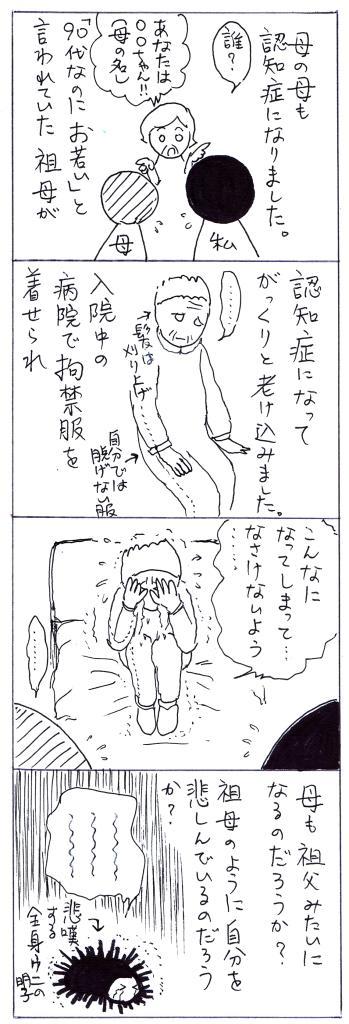 母の母も
認知症になりました。
誰?
あなたは
〇〇ちゃん!!
母の名
「90代なのにお若い」と
言われていた祖母が
私
母
認知症になって
がっくりと老け込みました。
……
髪は
刈り上げ
入院中の
病院で拘禁服を
着せられ
自分では
脱げない服
こんなに
なってしまって…
なさけないよう
……
……
母も祖父みたいに
なるのだろうか?
祖母のように自分を
悲しんでいるのだろう
か?
悲嘆
する
全身ウニの
明子